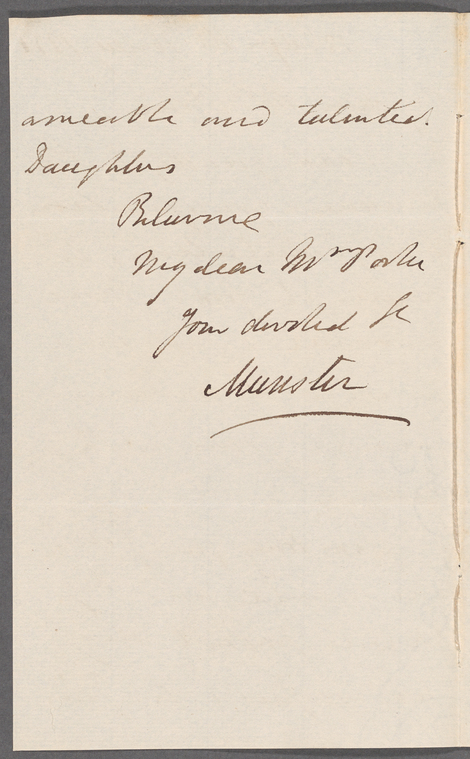 ameable and talented.
Daughters
Believe me
My dear Mrs Porter
Your devoted St
Munster